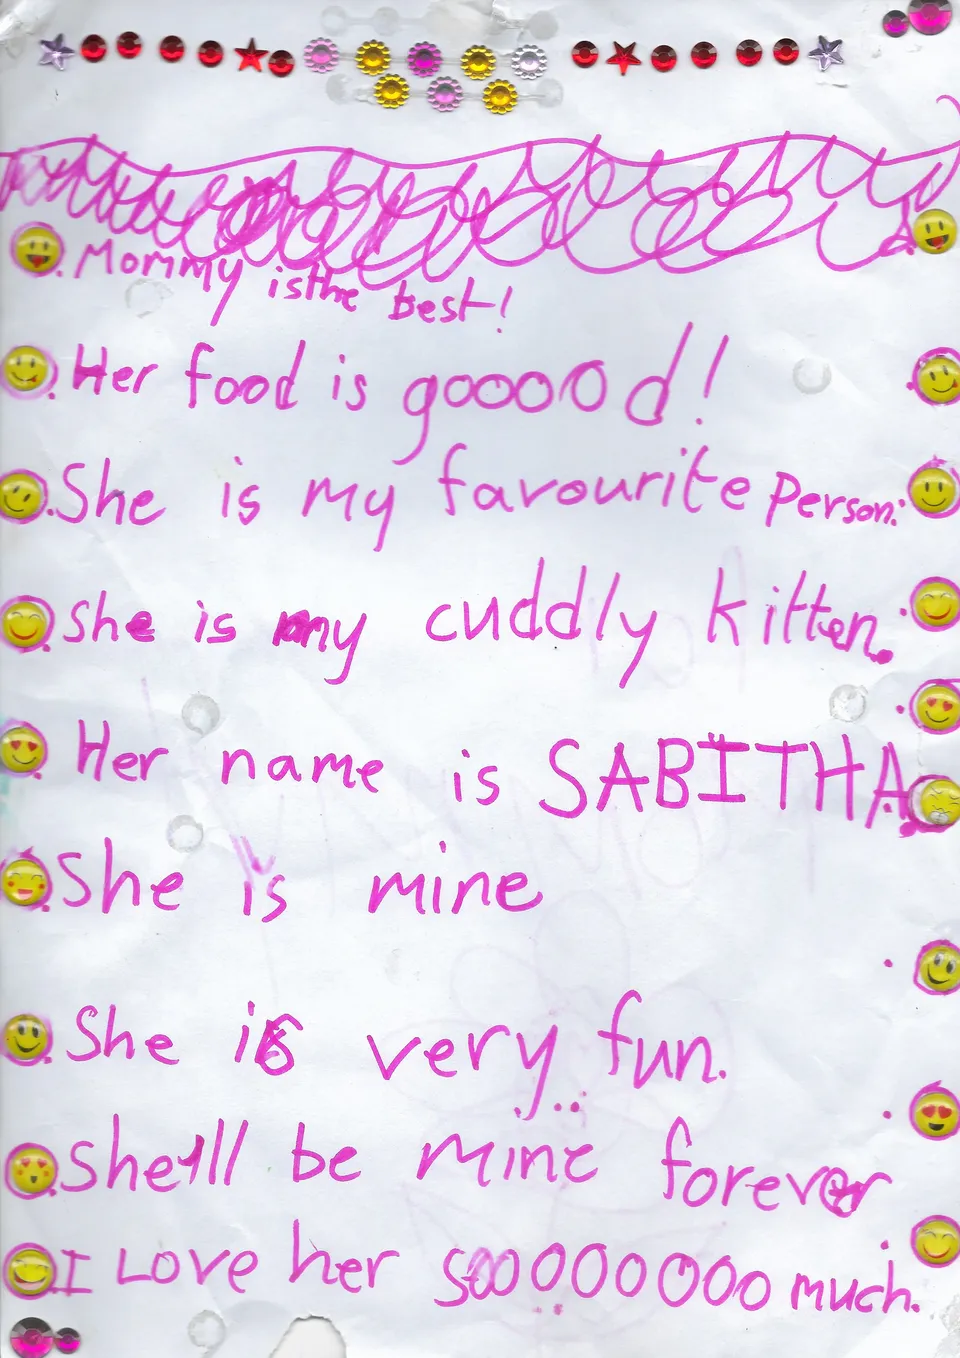 Mommy is the best!
Her food is gooood!
She is my favourite person.
She is my cuddly kitten.
Her name is SABITHA
She is mine
She is very fun.
She'll be mine forever
I Love her soooooooo much.